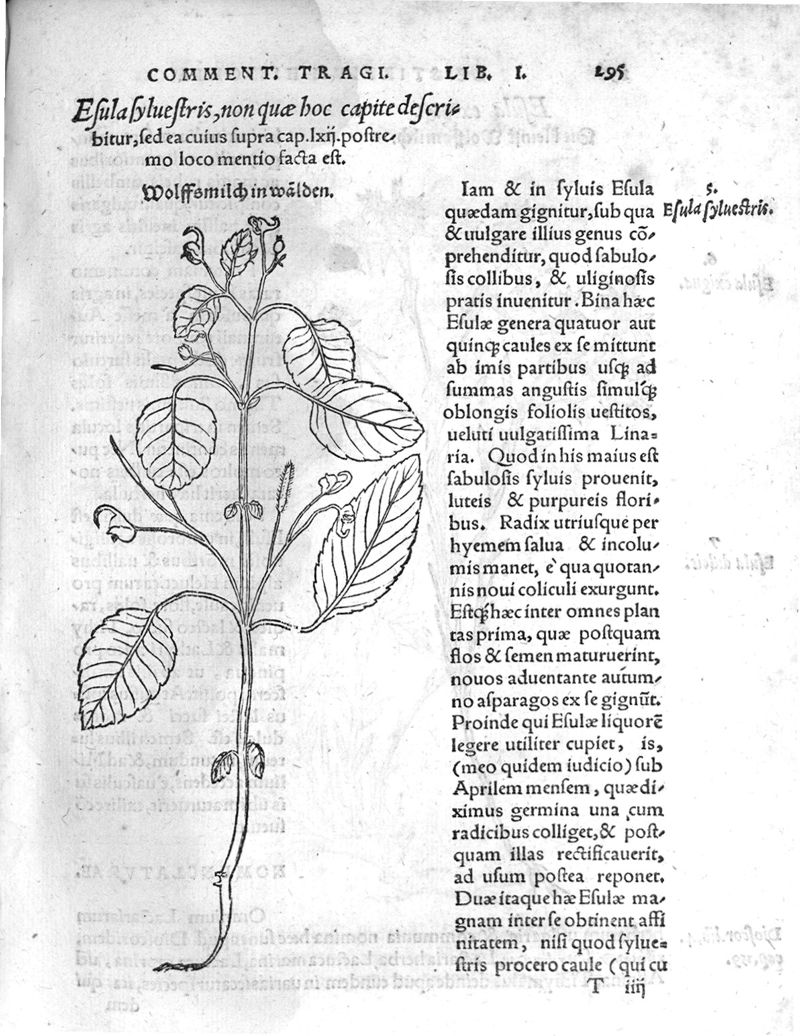 COMMENT. TRAGI. LIB. I. 295
Eſula ſylueſtris, non quæ hoc capite deſcri-
bitur, ſed ea cuius ſupra cap. lxij. poſtre-
mo loco mentio facta eſt.
Wolffsmilch in wälden.
Iam & in ſyluis Eſula
quædam gignitur, ſub qua
& uulgare illius genus cõ-
prehenditur, quod ſabulo-
ſis collibus, & uliginoſis
pratis inuenitur. Bina hæc
Eſulæ genera quatuor aut
quinq; caules ex ſe mittunt
ab imis partibus uſq; ad
ſummas anguſtis ſimulq;
oblongis foliolis ueſtitos,
ueluti uulgatiſſima Lina-
ria. Quod in his maius eſt
ſabuloſis ſyluis prouenit,
luteis & purpureis flori-
bus. Radix utriuſque per
hyemem ſalua & incolu-
mis manet, è qua quotan-
nis noui coliculi exurgunt.
Eſtq; hæc inter omnes plan
tas prima, quæ poſtquam
flos & ſemen maturuerint,
nouos aduentante autum-
no aſparagos ex ſe gignũt.
Proinde qui Eſulæ liquorẽ
legere utiliter cupiet, is,
(meo quidem iudicio) ſub
Aprilem menſem, quædi-
ximus germina una cum
radicibus colliget, & poſt-
quam illas rectificauerit,
ad uſum poſtea reponet.
Duæ itaque hæ Eſulæ ma-
gnam inter ſe obtinent affi
nitatem, niſi quod ſylue-
ſtris procero caule (qui cu
5.
Eſula ſylueſtris.
T iiij